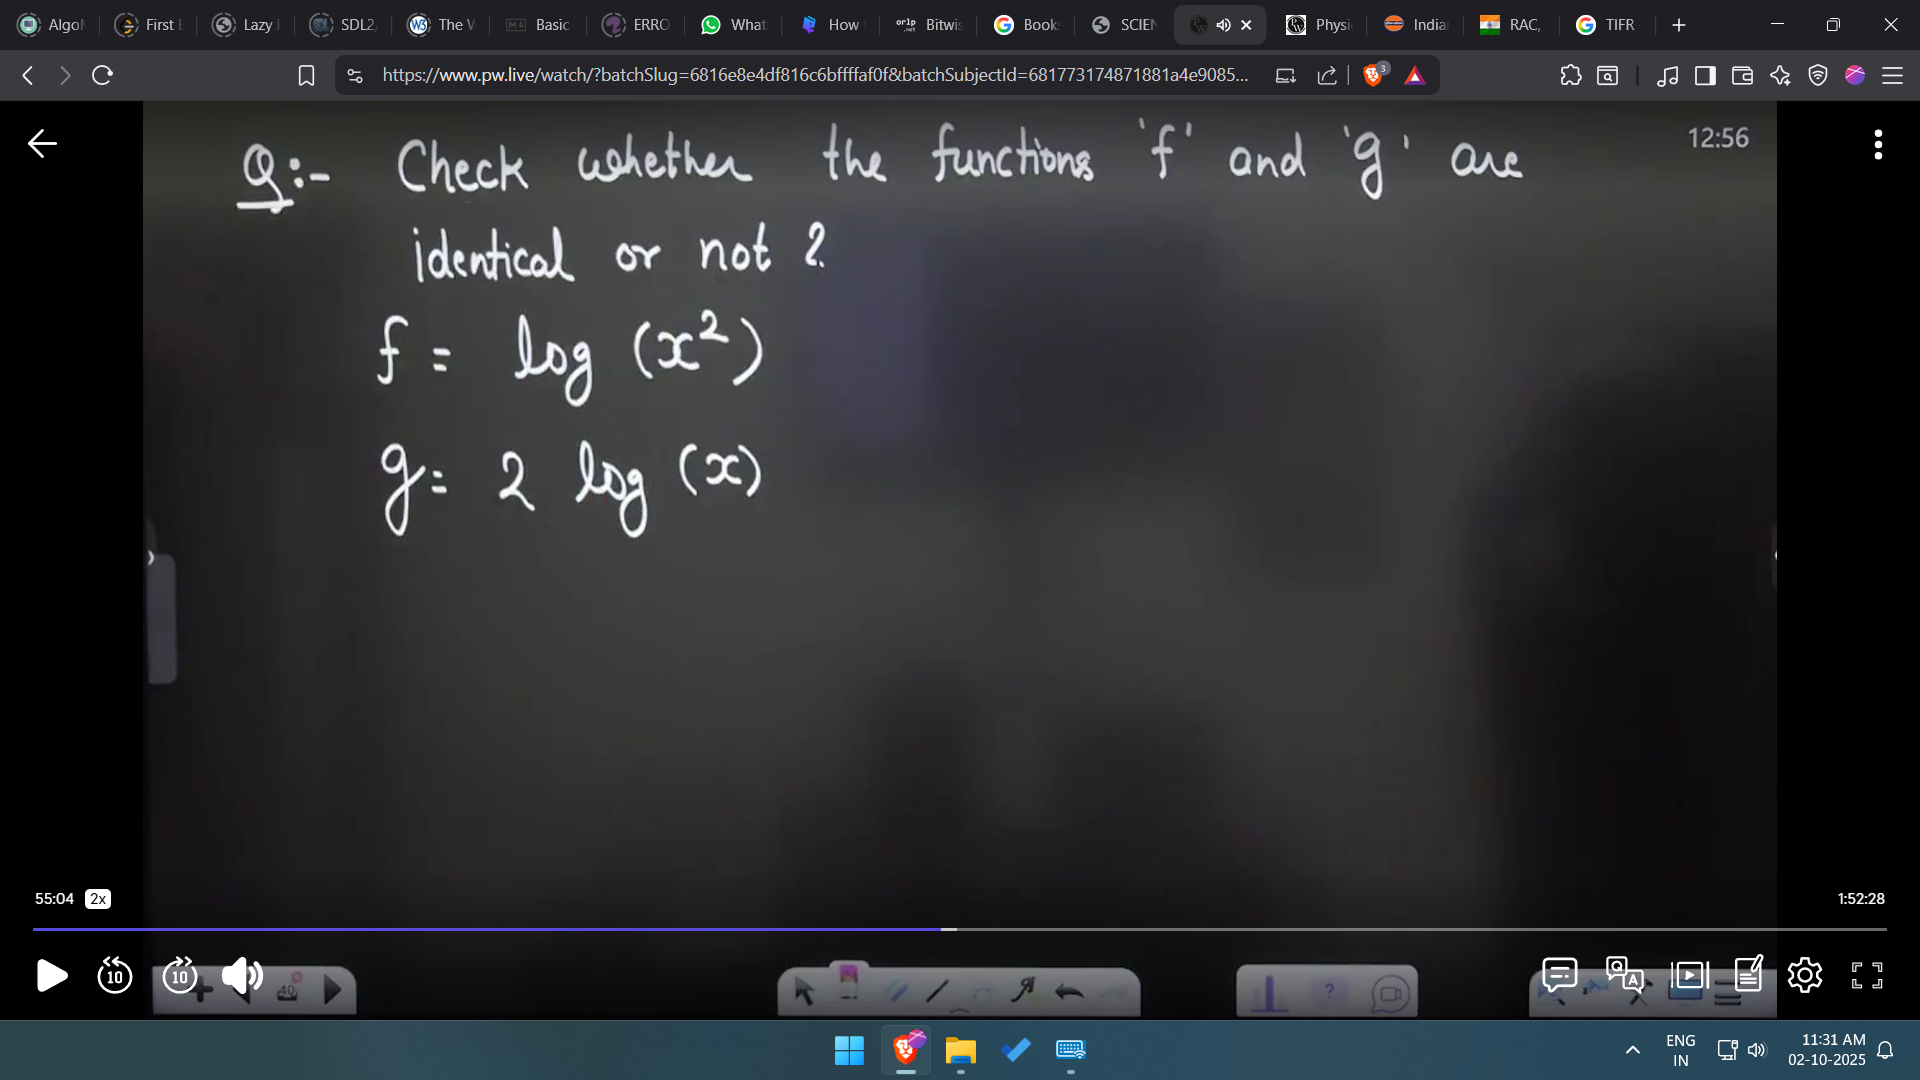 Algo
First E
Lazy
SDL2,
The W
Basic
ERRO
What
How
Bitwis
Book
SCIEN
Physi
India
RAC,
TIFR
https://www.pw.live/watch/?batchSlug=6816e8e4df816c6bffffaf0f&batchSubjectId=681773174871881a4e9085...
3
12:56
Q:- Check whether the functions 'f' and 'g' are
identical or not ?
f = log (x²)
g = 2 log (x)
55:04 2x
1:52:28
10
10
40
ENG
IN
11:31 AM
02-10-2025